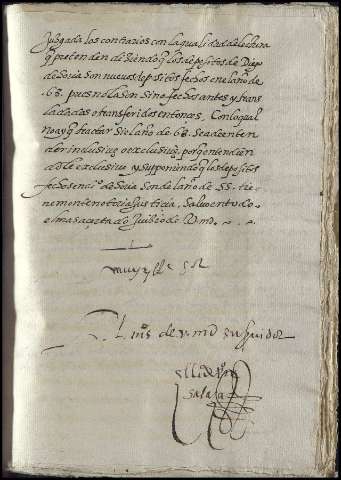 Juzgada los contrarios con la qualidad de la hera
q pretenden diziendo q los depositos de Diego
de Soria son nuevos depositos fechos en el año de
68. pues no la son sino fechos antes y tras
ladados o transferidos entonces. Con lo qual
no ay q tractar si el año de 68. se a de enten
der inclusive o exclusive, porq entendien
dole exclusive, y supponiendo q los depositos
fechos en de Soria son del año de 55. tie
nen notoria justicia, Salvo en todo
el mas açertado juizio de V.md.
muy Ille Sor
B. L. ms de v. md su servidor
el lido
salaza